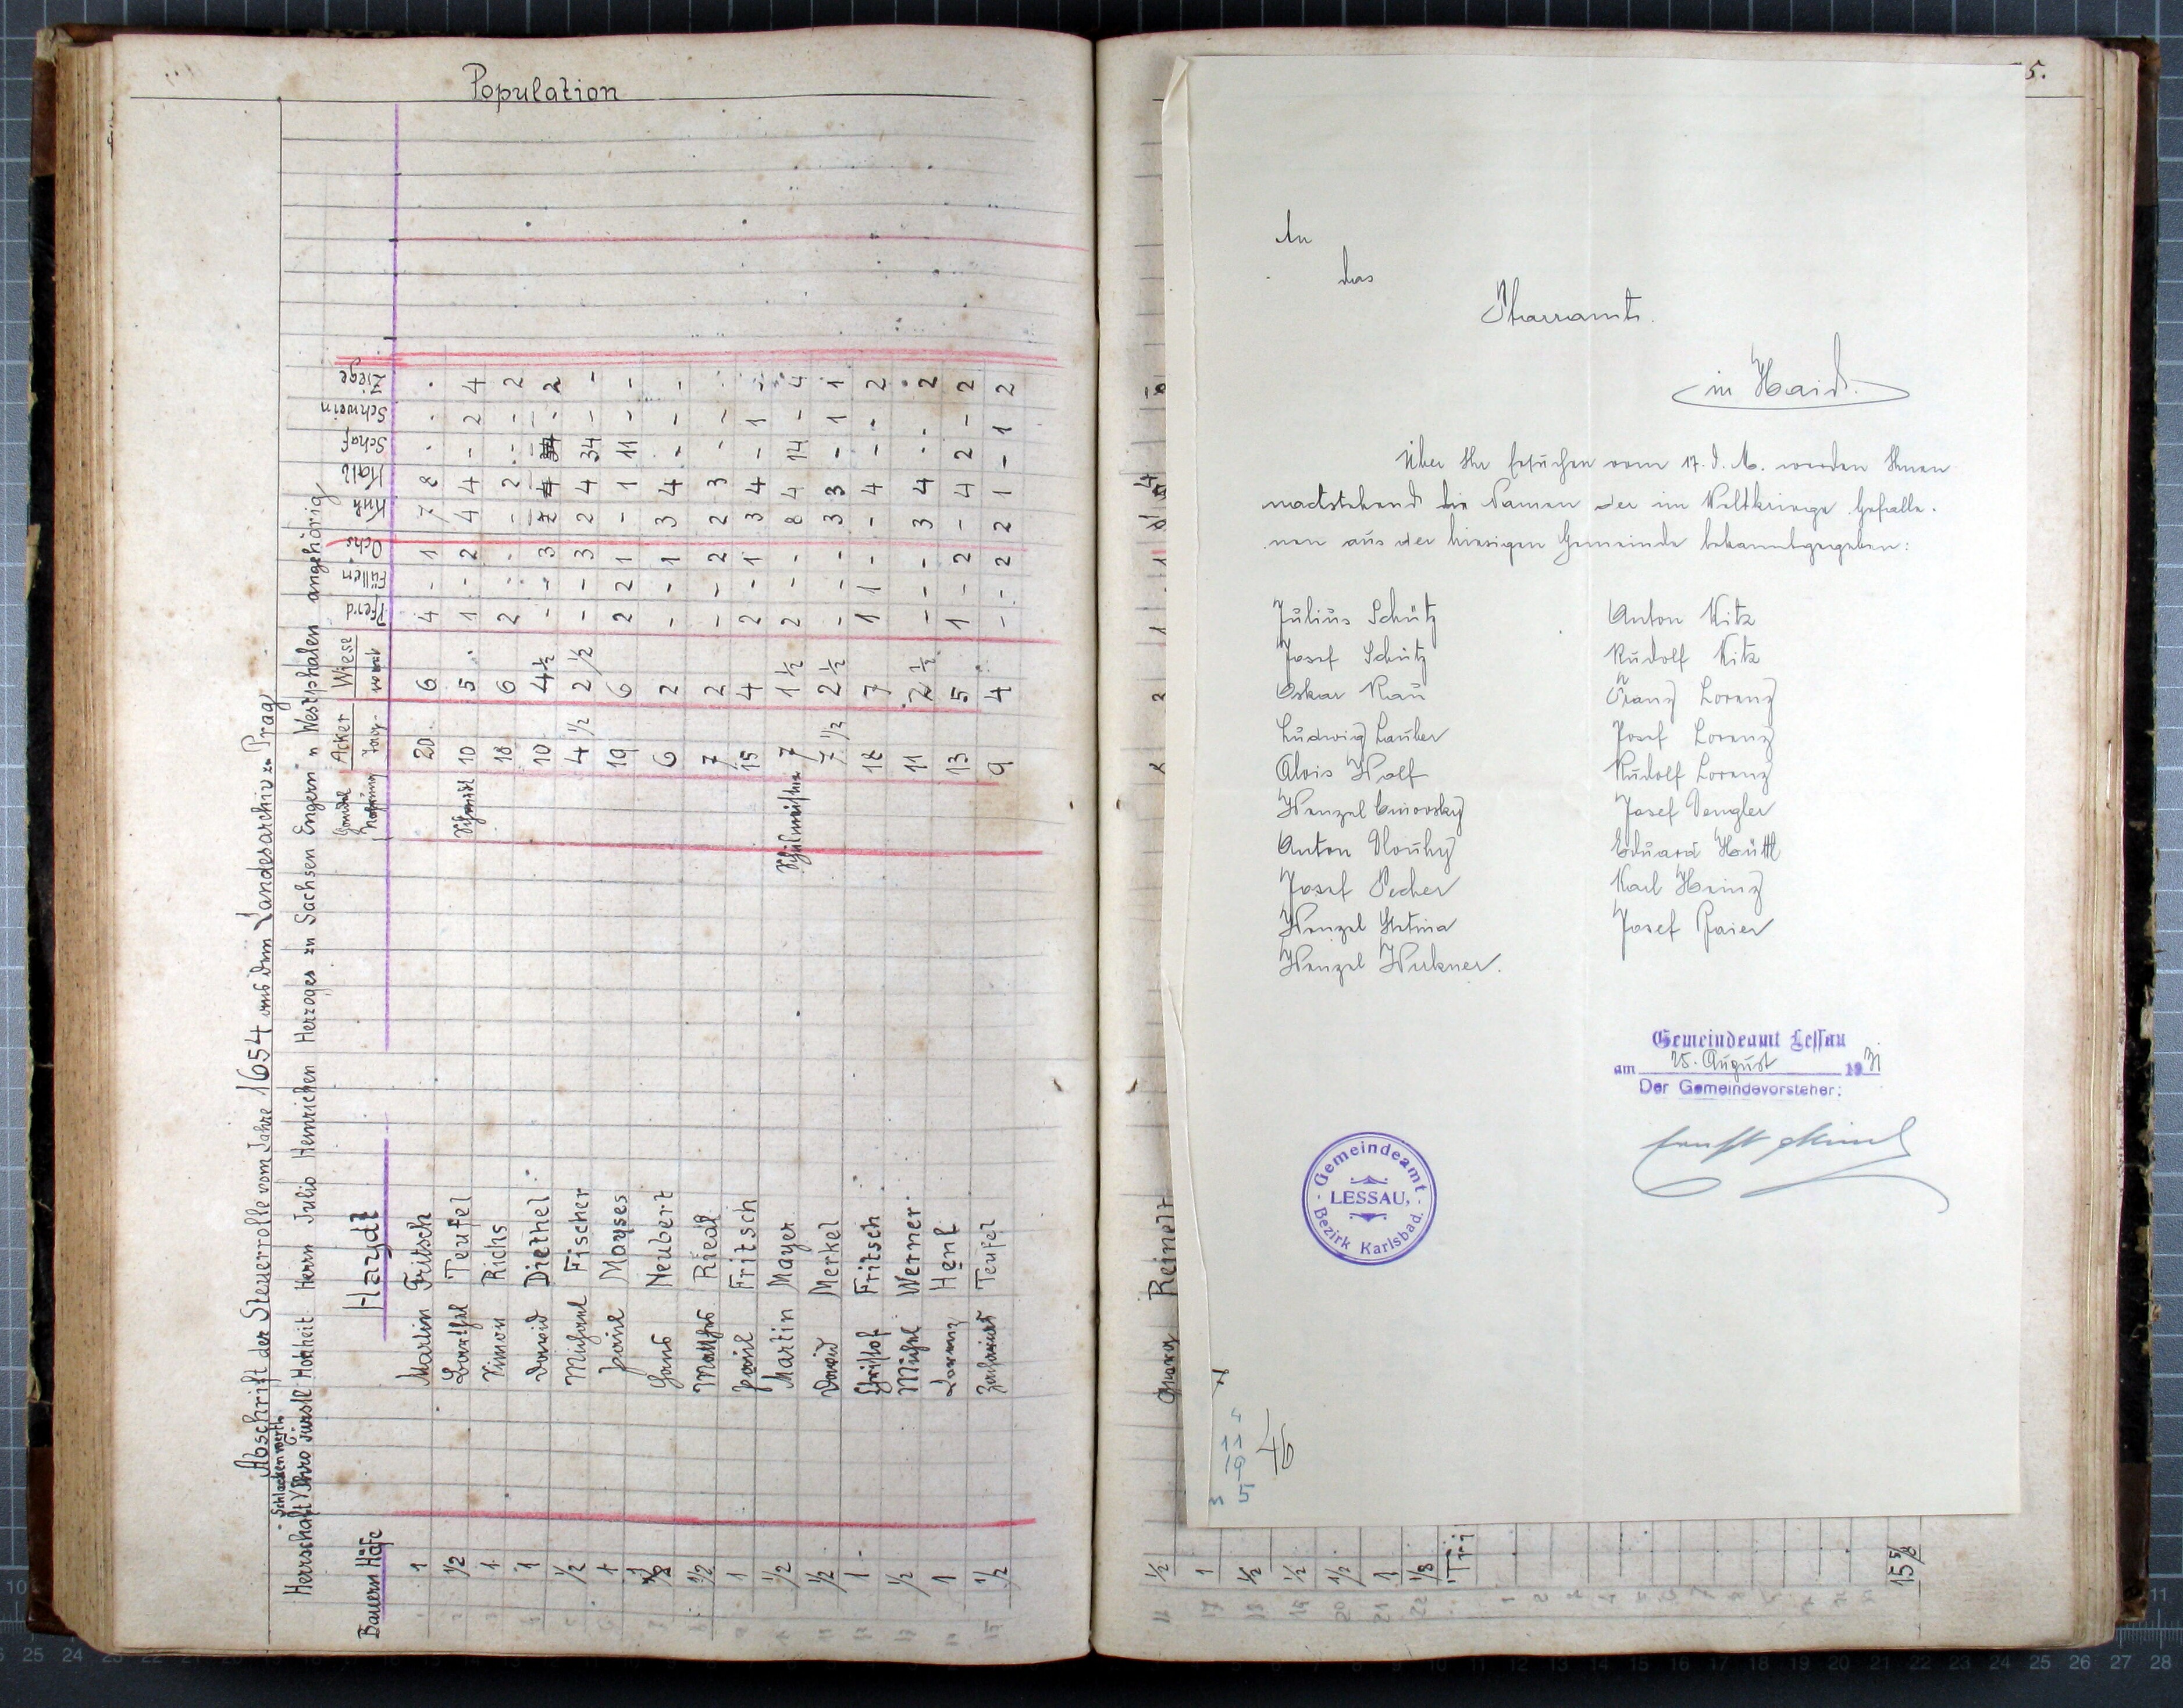 Population
Abschrift der Steuerrolle vom Jahre 1654 aus dem Landesarchiv zu Prag
Schlackenwerth
Herrschaft Ihro Fürstl Hohheit Herrn Julio Heinrichen Herzoges zu Sachsen Engern u Westphalen angehörig
Bauern Höfe Haydt Acker Wiese Pferd Füllen Ochs Kuh Kalb Schaf Schwein Ziege
1 Martin Fritsch 20 6 4 - 1 7 8 . . .
1/2 Barthel Teufel Schmidt 10 5 1 - 2 4 4 - 2 4
1 Simon Richs 18 6 2 - - - 2 - - 2
1 David Diethel 10 4 1/2 - - 3 2 4 34 - 2
1/2 Michael Fischer 4 1/2 2 1/2 - - 3 2 4 34 - -
1 Paul Moyses 19 6 2 2 1 - 1 11 - -
1/2 Hans Neubert 6 2 - - 1 3 4 - - -
1/2 Mathes Riedl 7 2 - - 2 2 3 - -
1 Paul Fritsch 15 4 2 - 1 3 4 - 1
1/2 Martin Mayer Schulmeister 7 1 1/2 2 - - 8 4 14 - 4
1/2 David Merkel 7 1/2 2 1/2 - - - 3 3 - 1 1
1 Christof Fritsch 18 7 1 1 - - 4 - - 2
1/2 Michel Werner 11 2 1/2 - - - 3 4 - - 2
1 Lorenz Henl 13 5 1 - 2 - 4 2 - 2
1/2 Zacharias Teufel 9 4 - - 2 2 1 - 1 2
5.
An
das
Pfarramt
in Haid.
Über Ihr Ersuchen vom 17. d. M. werden Ihnen
nachstehend die Namen der im Weltkriege Gefalle-
nen aus der hiesigen Gemeinde bekanntgegeben:
Julius Schütz Anton Kitz
Josef Schütz Rudolf Kitz
Oskar Rau Franz Lorenz
Ludwig Lauber Josef Lorenz
Alois Wolf Rudolf Lorenz
Wenzel Josef Dengler
Anton Dlouhy Eduard Hüttl
Josef Pecher Karl Heinz
Wenzel Josef Baier
Wenzel Wirkner.
Gemeindeamt Lessau
am 25. August 1931
Der Gemeindevorsteher:
Gemeindeamt
LESSAU,
Bezirk Karlsbad.
Georg Reinelt
4
11
19
5
46
1/2
1
1/2
1/2
1/2
1
1/8
15 5/8